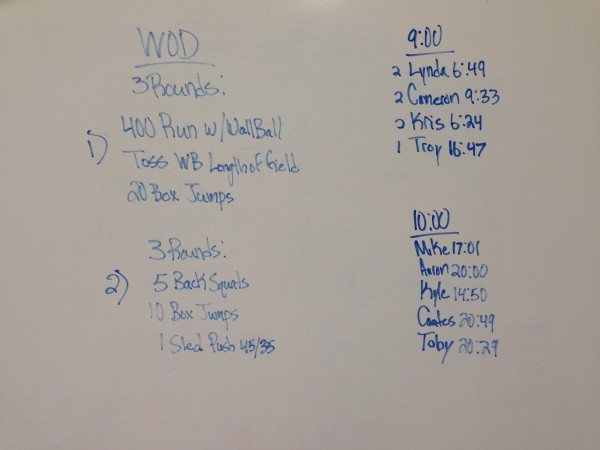 WOD
3 Rounds:
1) 400 Run w/ Wall Ball
Toss WB Length of Field
20 Box Jumps
3 Rounds:
2) 5 Back Squats
10 Box Jumps
1 Sled Push 45/35
9:00
2 Lynda 6:49
2 Cameron 9:33
2 Kris 6:24
1 Troy 16:47
10:00
Mike 17:01
Aaron 20:00
Kyle 14:50
Coates 20:49
Toby 20:29